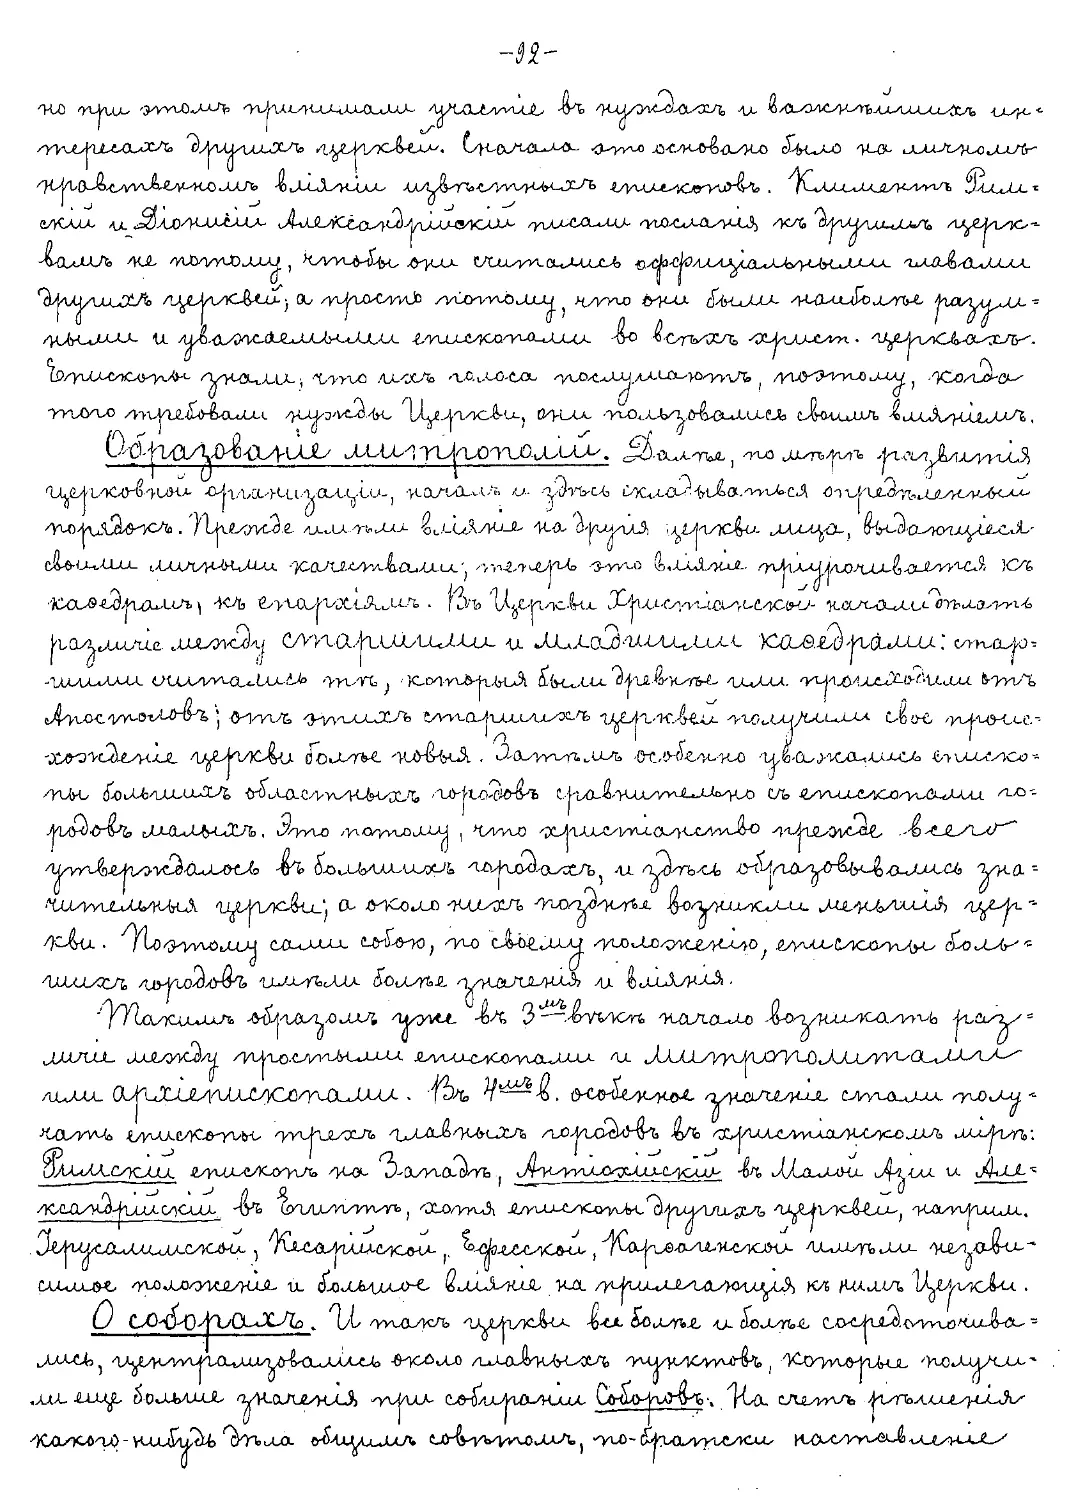 -92-
но при этомъ принимали участіе въ нуждахъ и важнѣйшихъ ин=
тересахъ другихъ церквей. Сначала это основано было на личномъ
нравственномъ вліяніи извѣстныхъ епископовъ. Климентъ Рим=
скій и Діонисій Александрійскій писали посланія къ другимъ церк=
вамъ не потому, чтобы они считались оффиціальными главами
другихъ церквей, а просто потому, что они были наиболѣе разум=
ными и уважаемыми епископами во всѣхъ христ. церквахъ.
Епископы знали, что ихъ голоса послушаютъ, поэтому, когда
того требовали нужды Церкви, они пользовались своимъ вліяніемъ.
Образованіе митрополій. Далѣе, по мѣрѣ развитія
церковной организаціи, началъ и здѣсь складываться опредѣленный
порядокъ. Прежде имѣли вліяніе на другія церкви лица, выдающіеся
своими личными качествами; теперь это вліяніе пріурочивается къ
каѳедрамъ, къ епархіямъ. Въ Церкви Христіанской начали дѣлать
различіе между старшими и младшими каѳедрами: стар=
шими считались тѣ, которыя были древнѣе или происходили отъ
Апостоловъ; отъ этихъ старшихъ церквей получили свое проис=
хожденіе церкви болѣе новыя. Затѣмъ особенно уважались еписко=
пы большихъ областныхъ городовъ сравнительно съ епископами го=
родовъ малыхъ. Это потому, что христіанство прежде всего
утверждалось въ большихъ городахъ, и здѣсь образовывались зна=
чительныя церкви; а около нихъ позднѣе возникли меньшія цер=
кви. Поэтому сами собою, по своему положенію, епископы боль=
шихъ городовъ имѣли болѣе значенія и вліянія.
Такимъ образомъ уже въ 3мъ вѣкѣ начало возникать раз=
личіе между простыми епископами и митрополитами
или архіепископами. Въ 4мъ в. особенное значеніе стали полу=
чать епископы трехъ главныхъ городовъ въ христіанскомъ мірѣ:
Римскій епископъ на Западѣ, Антіохійскій въ Малой Азіи и Але=
ксандрійскій въ Египтѣ, хотя епископы другихъ церквей, наприм.
Іерусалимской, Кесарійской, Ефесской, Карѳагенской имѣли незави=
симое положеніе и большое вліяніе на прилегающія къ нимъ Церкви.
О соборахъ. И такъ церкви все болѣе и болѣе сосредоточива=
лись, централизовались около главныхъ пунктовъ, которые получи=
ли еще больше значенія при собираніи Соборовъ. На счетъ рѣшенія
какого-нибудь дѣла общимъ совѣтомъ, по-братски наставленіе